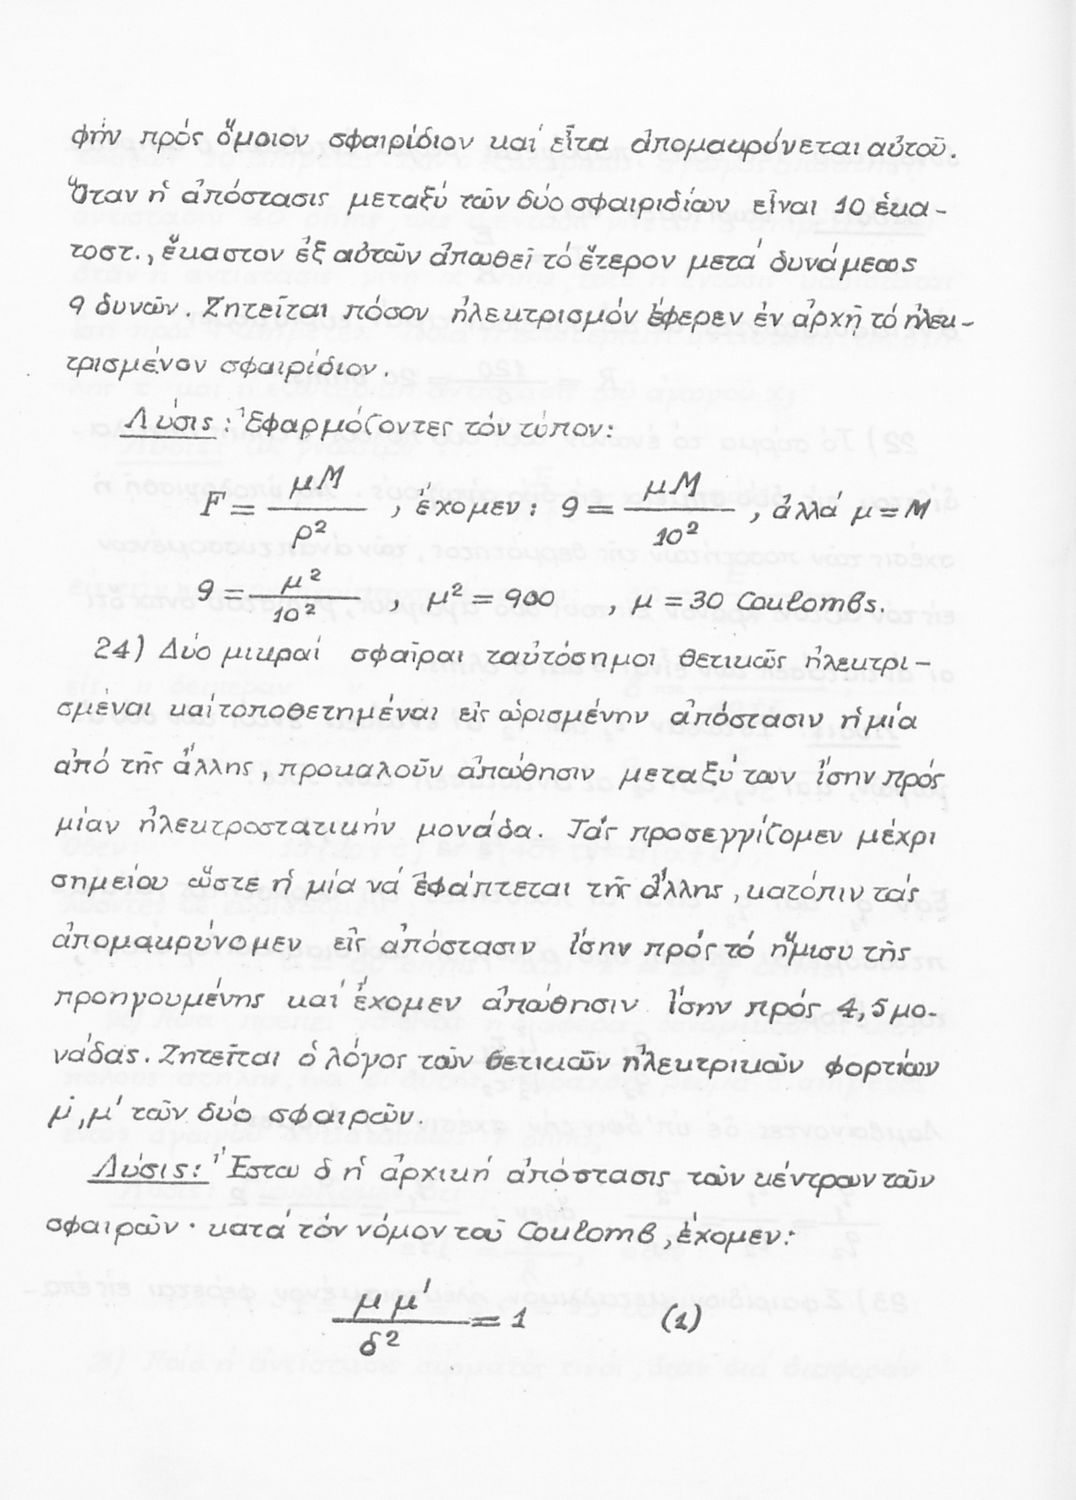 φήν πρός ὅμοιον σφαιρίδιον καί εἶτα ἀπομακρύνεται αὐτοῦ.
Ὅταν ἡ ἀπόστασις μεταξύ τῶν δύο σφαιριδίων εἶναι 10 ἑκα-
τοστ., ἕκαστον ἐξ αὐτῶν ἀπωθεῖ τό ἕτερον μετά δυνάμεως
9 δυνῶν. Ζητεῖται πόσον ἠλεκτρισμόν ἔφερεν ἐν ἀρχῇ τό ἠλεκ-
τρισμένον σφαιρίδιον.
Λύσις: Ἐφαρμόζοντες τόν τύπον:
F = μΜ / ρ² , ἔχομεν: 9 = μΜ / 10² , ἀλλά μ = Μ
9 = μ² / 10² , μ² = 900 , μ = 30 Coulombs.
24) Δύο μικραί σφαῖραι ταὐτόσημοι θετικῶς ἠλεκτρι-
σμέναι καί τοποθετημέναι εἰς ὡρισμένην ἀπόστασιν ἡ μία
ἀπό τῆς ἄλλης, προκαλοῦν ἀπώθησιν μεταξύ των ἴσην πρός
μίαν ἠλεκτροστατικήν μονάδα. Τάς προσεγγίζομεν μέχρι
σημείου ὥστε ἡ μία νά ἐφάπτεται τῆς ἄλλης, κατόπιν τάς
ἀπομακρύνομεν εἰς ἀπόστασιν ἴσην πρός τό ἥμισυ τῆς
προηγουμένης καί ἔχομεν ἀπώθησιν ἴσην πρός 4,5 μο-
νάδας. Ζητεῖται ὁ λόγος τῶν θετικῶν ἠλεκτρικῶν φορτίων
μ, μ' τῶν δύο σφαιρῶν.
Λύσις: Ἔστω δ ἡ ἀρχική ἀπόστασις τῶν κέντρων τῶν
σφαιρῶν · κατά τόν νόμον τοῦ Coulomb, ἔχομεν:
μ μ' / δ² = 1 (1)